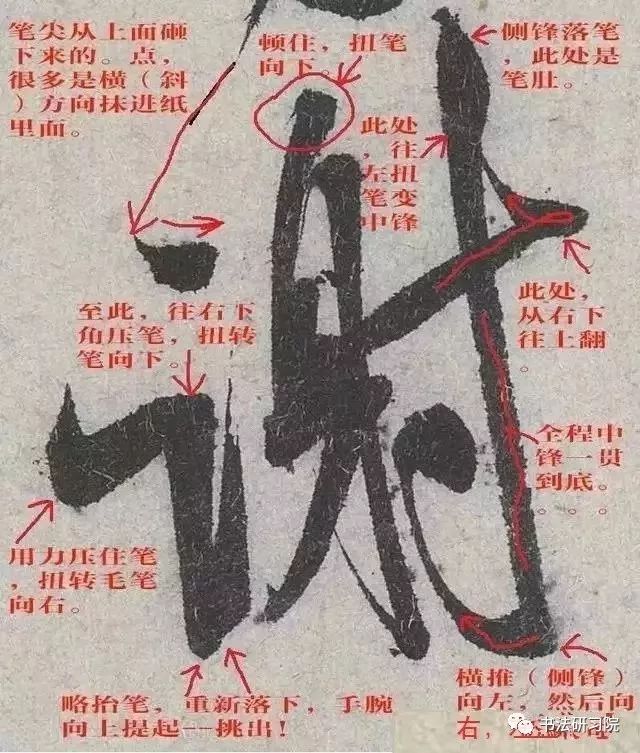 笔尖从上面砸
下来的。点，
很多是横（斜
）方向抹进纸
里面。
顿住，扭笔
向下。
侧锋落笔
，此处是
笔肚。
此处
，往
左扭
笔变
中锋
谢
至此，往右下
角压笔，扭转
笔向下。
此处，
从右下
往上翻
。
全程中
锋一贯
到底。
。。。
用力压住笔
，扭转毛笔
向右。
略抬笔，重新落下，手腕
向上提起——挑出！
横推（侧锋）
向左，然后向
右，
书法研习院